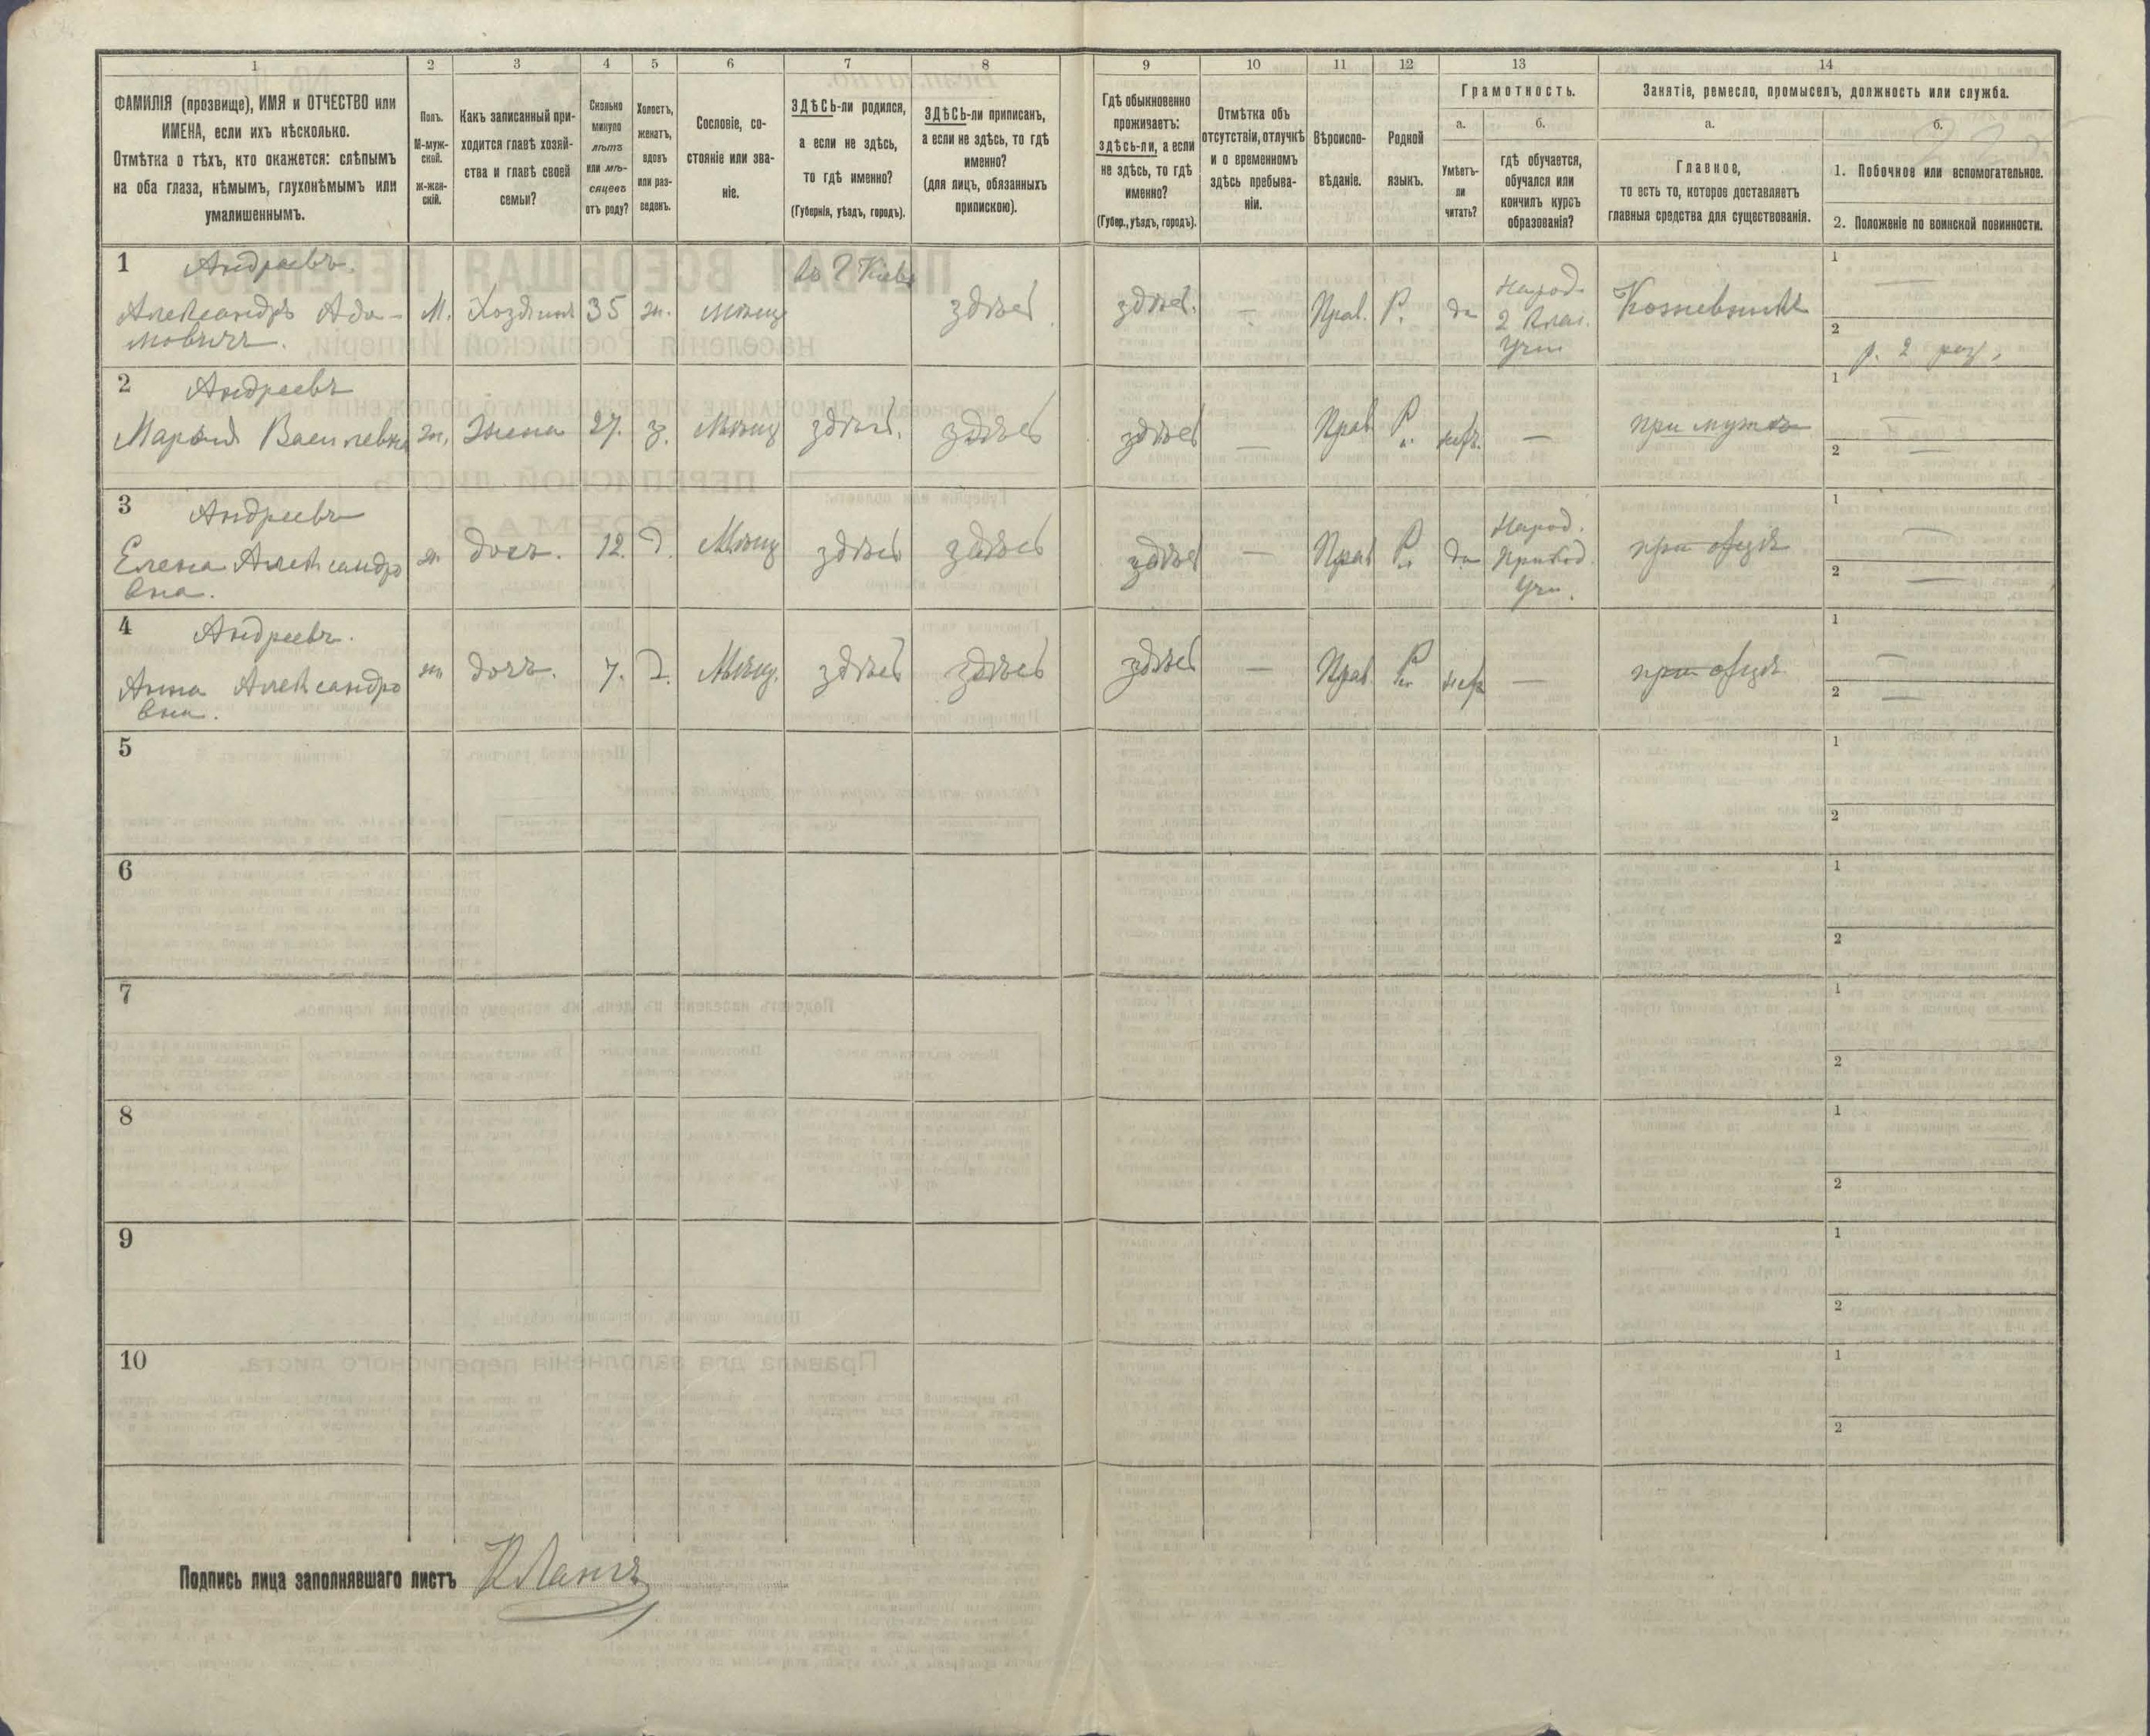 1 2 3 4 5 6 7 8 9 10 11 12 13 14
ФАМИЛІЯ (прозвище), ИМЯ и ОТЧЕСТВО или
ИМЕНА, если ихъ нѣсколько.
Отмѣтка о тѣхъ, кто окажется: слѣпымъ
на оба глаза, нѣмымъ, глухонѣмымъ или
умалишеннымъ.
Полъ.
М-муж-
ской.
ж-жен-
скій.
Какъ записанный при-
ходится главѣ хозяй-
ства и главѣ своей
семьи?
Сколько
минуло
лѣтъ
или мѣ-
сяцевъ
отъ роду?
Холостъ,
женатъ,
вдовъ
или раз-
веденъ.
Сословіе, со-
стояніе или зва-
ніе.
ЗДѢСЬ-ли родился,
а если не здѣсь,
то гдѣ именно?
(Губернія, уѣздъ, городъ).
ЗДѢСЬ-ли приписанъ,
а если не здѣсь, то гдѣ
именно?
(для лицъ, обязанныхъ
припискою).
Гдѣ обыкновенно
проживаетъ:
здѣсь-ли, а если
не здѣсь, то гдѣ
именно?
(Губер., уѣздъ, городъ).
Отмѣтка объ
отсутствіи, отлучкѣ
и о временномъ
здѣсь пребыва-
ніи.
Вѣроиспо-
вѣданіе.
Родной
языкъ.
Грамотность.
а.
Умѣетъ-
ли
читать?
б.
гдѣ обучается,
обучался или
кончилъ курсъ
образованія?
Занятіе, ремесло, промыселъ, должность или служба.
а.
Главное,
то есть то, которое доставляетъ
главныя средства для существованія.
б.
1. Побочное или вспомогательное.
2. Положеніе по воинской повинности.
1 Андреевъ.
Александръ Ада-
мовичъ.
М. Хозяинъ 35 ж. мѣщ здѣсь здѣсь. — Прав. Р. да
Народ.
2 Клас.
Учи
Кожевникъ
1 —
2 р. 2 раз.
2 Андреевъ
Марья Василевна ж. Жена 27. з. Мѣщ здѣсь. здѣсь здѣсь — Прав Р. нѣтъ — при мужѣ
1 —
2 —
3 Андреевъ
Елена Александро
вна.
ж дочъ. 12. д. Мѣщ здѣсь здѣсь здѣсь — Прав Р. да
Народ.
Приход.
Учи.
при отцѣ
1 —
2 —
4 Андреевъ.
Анна Александро
вна.
ж дочъ. 7. д. Мѣщ. здѣсь здѣсь здѣсь — Прав. Р. нѣтъ — при отцѣ
1 —
2 —
5 1
2
6 1
2
7
2
8 1
2
9 1
2
10 1
2
Подпись лица заполнявшаго листъ